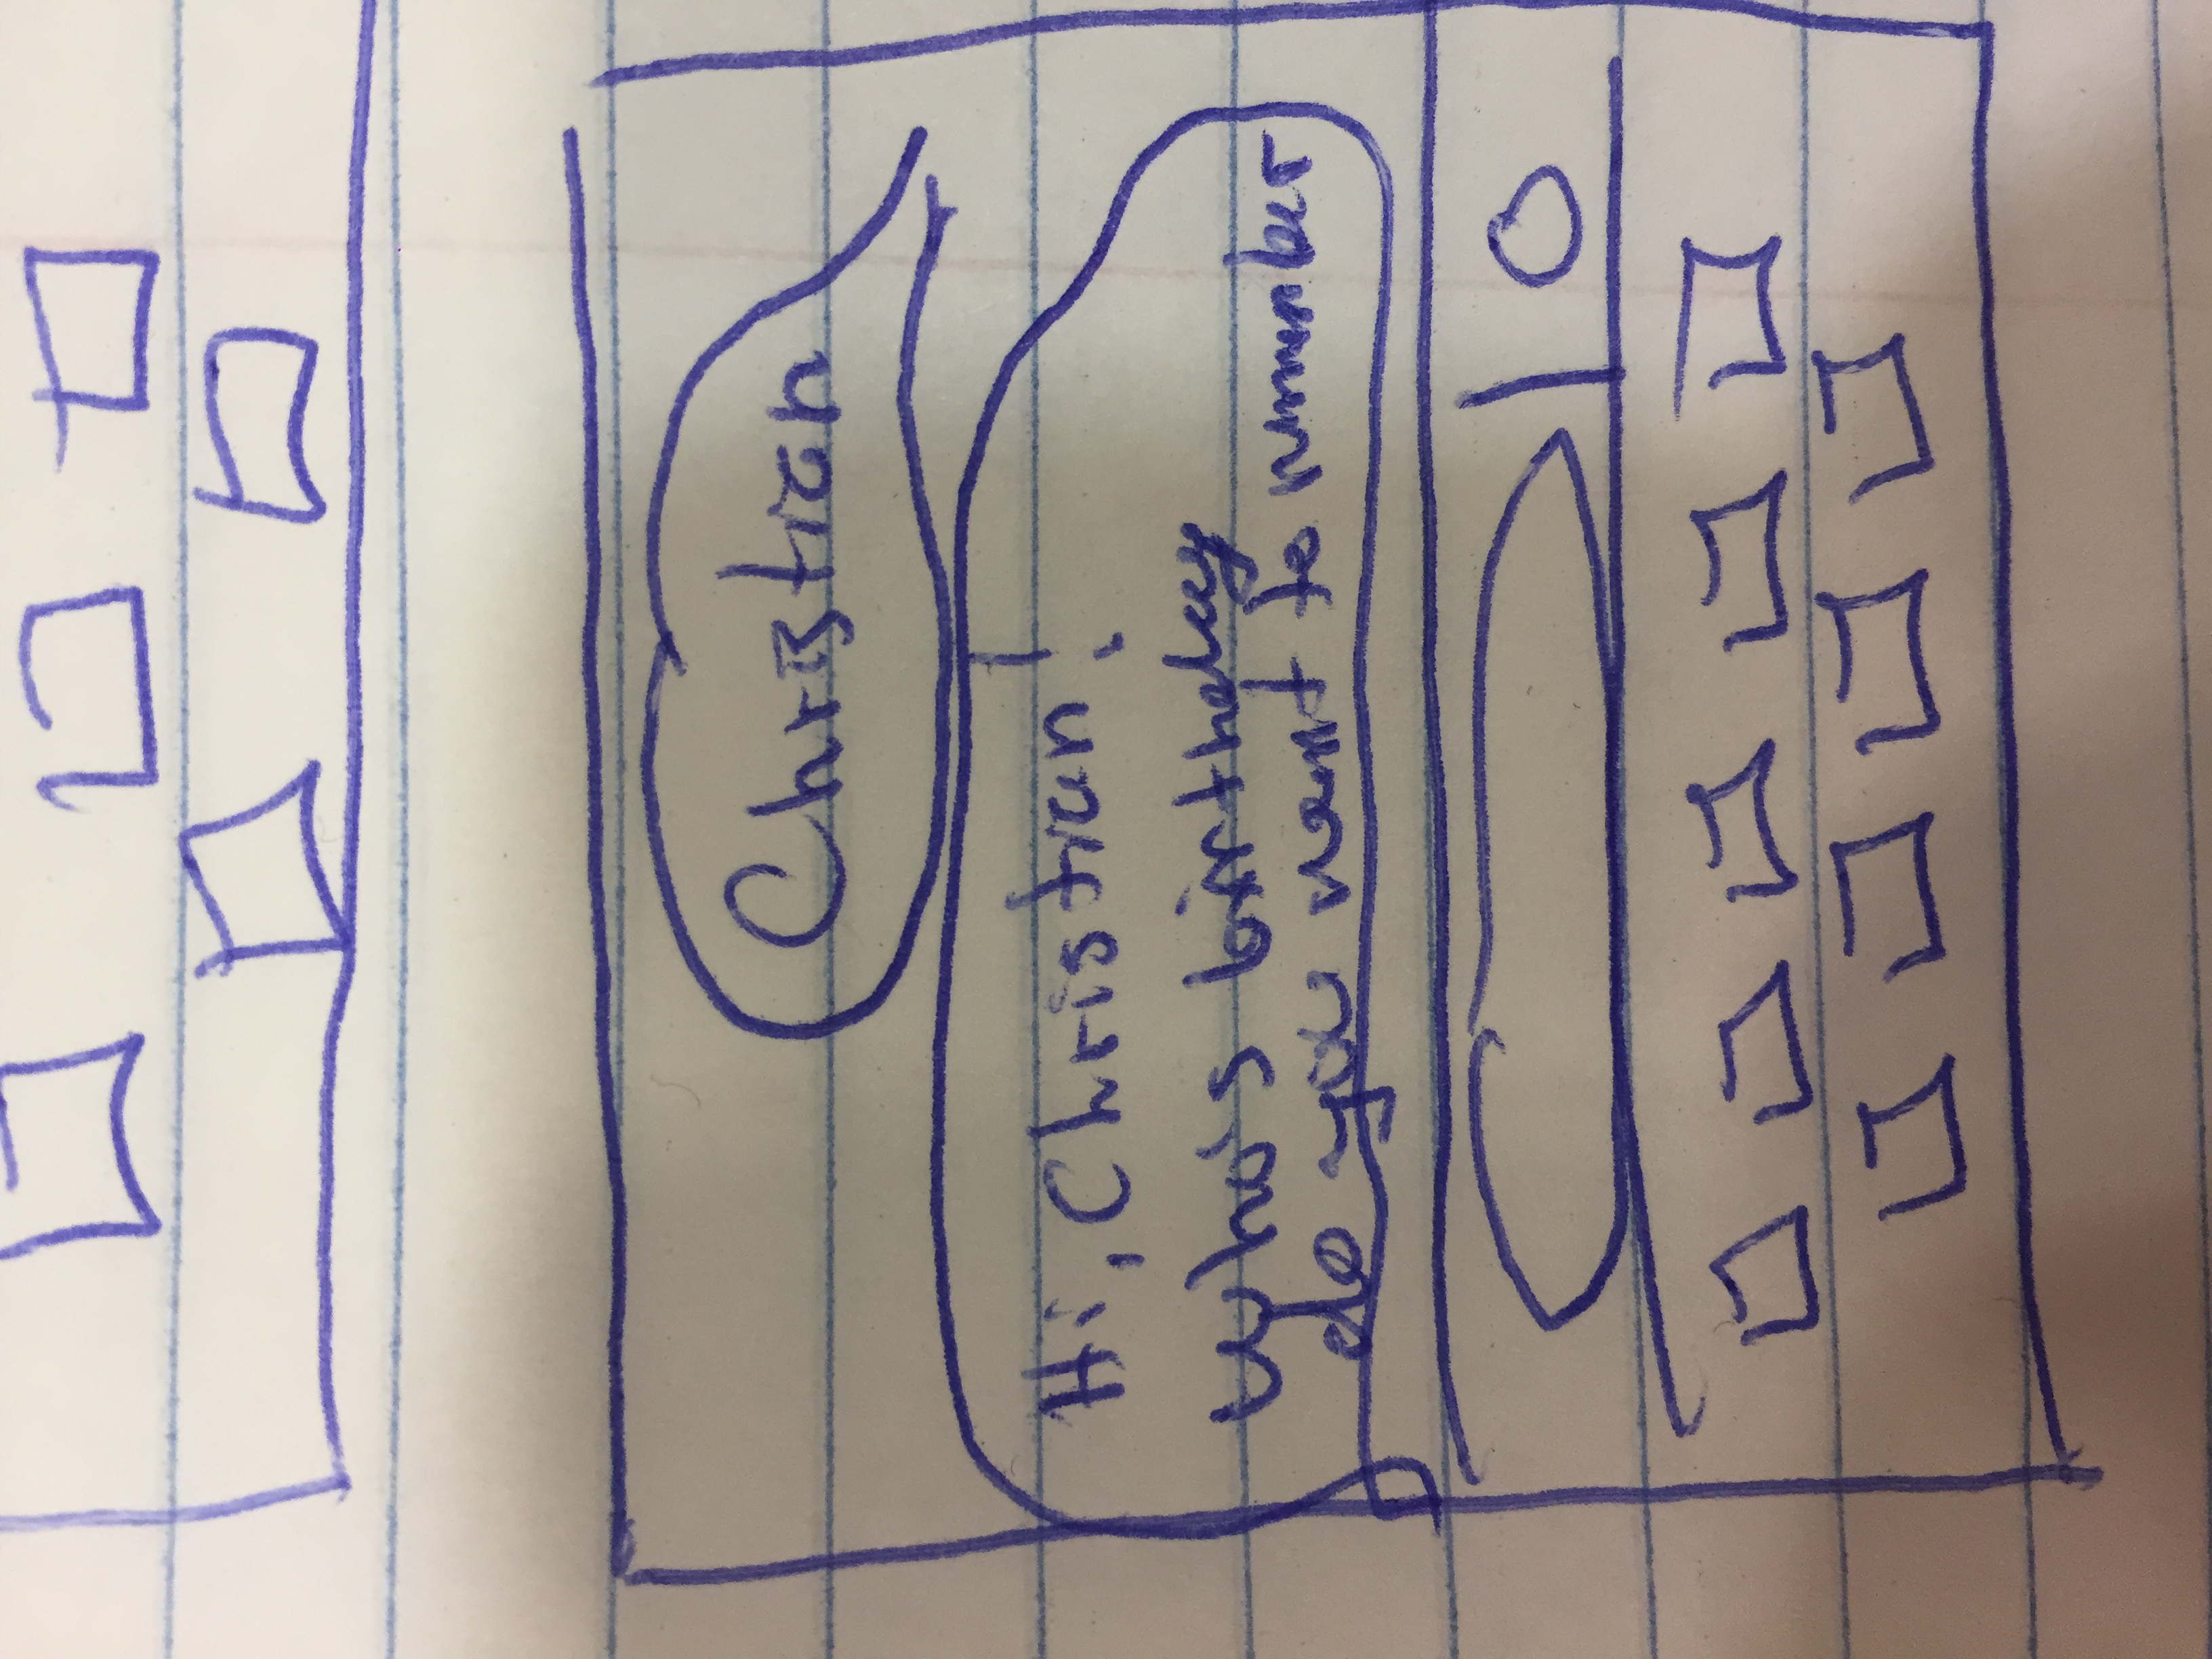 Christian
Hi, Christian!
Who's birthday
do you want to remember